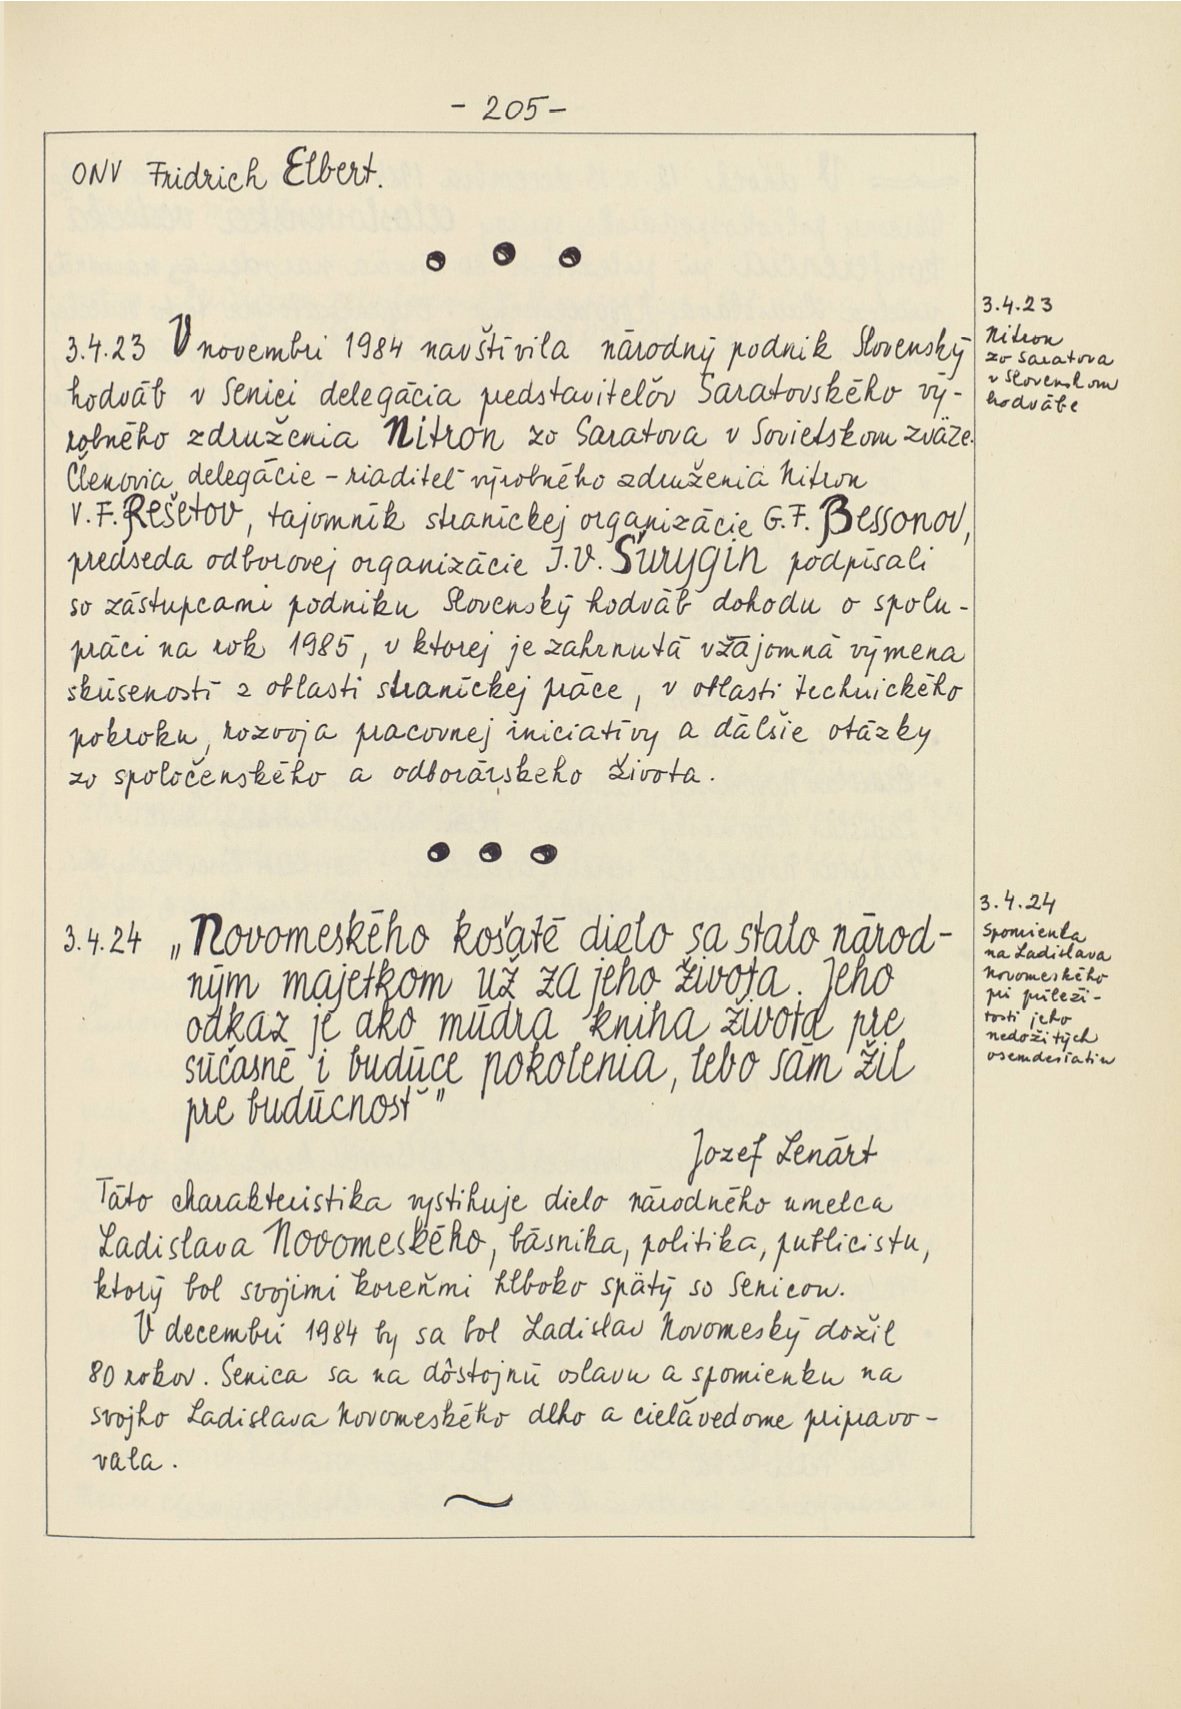 - 205 -
ONV Fridrich Elbert.
3.4.23 V novembri 1984 navštívila národný podnik Slovenský
hodváb v Senici delegácia predstaviteľov Saratovského vý-
robného združenia Nitron zo Saratova v Sovietskom zväze.
Členovia delegácie - riaditeľ výrobného združenia Nitron
V. F. Rešetov, tajomník straníckej organizácie G. F. Bessonov,
predseda odborovej organizácie I. V. Šurygin podpísali
so zástupcami podniku Slovenský hodváb dohodu o spolu-
práci na rok 1985, v ktorej je zahrnutá vzájomná výmena
skúseností z oblasti straníckej práce, v oblasti technického
pokroku, rozvoja pracovnej iniciatívy a ďalšie otázky
zo spoločenského a odborárskeho života.
3.4.23
Nitron
zo Saratova
v Slovenskom
hodvábe
3.4.24 „Novomeského košaté dielo sa stalo národ-
ným majetkom už za jeho života. Jeho
odkaz je ako múdra kniha života pre
súčasné i budúce pokolenia, lebo sám žil
pre budúcnosť"
Jozef Lenárt
Táto charakteristika vystihuje dielo národného umelca
Ladislava Novomeského, básnika, politika, publicistu,
ktorý bol svojimi koreňmi hlboko spätý so Senicou.
V decembri 1984 by sa bol Ladislav Novomeský dožil
80 rokov. Senica sa na dôstojnú oslavu a spomienku na
svojho Ladislava Novomeského dlho a cieľavedome pripravo-
vala.
3.4.24
Spomienka
na Ladislava
Novomeského
pri príleži-
tosti jeho
nedožitých
osemdesiatin